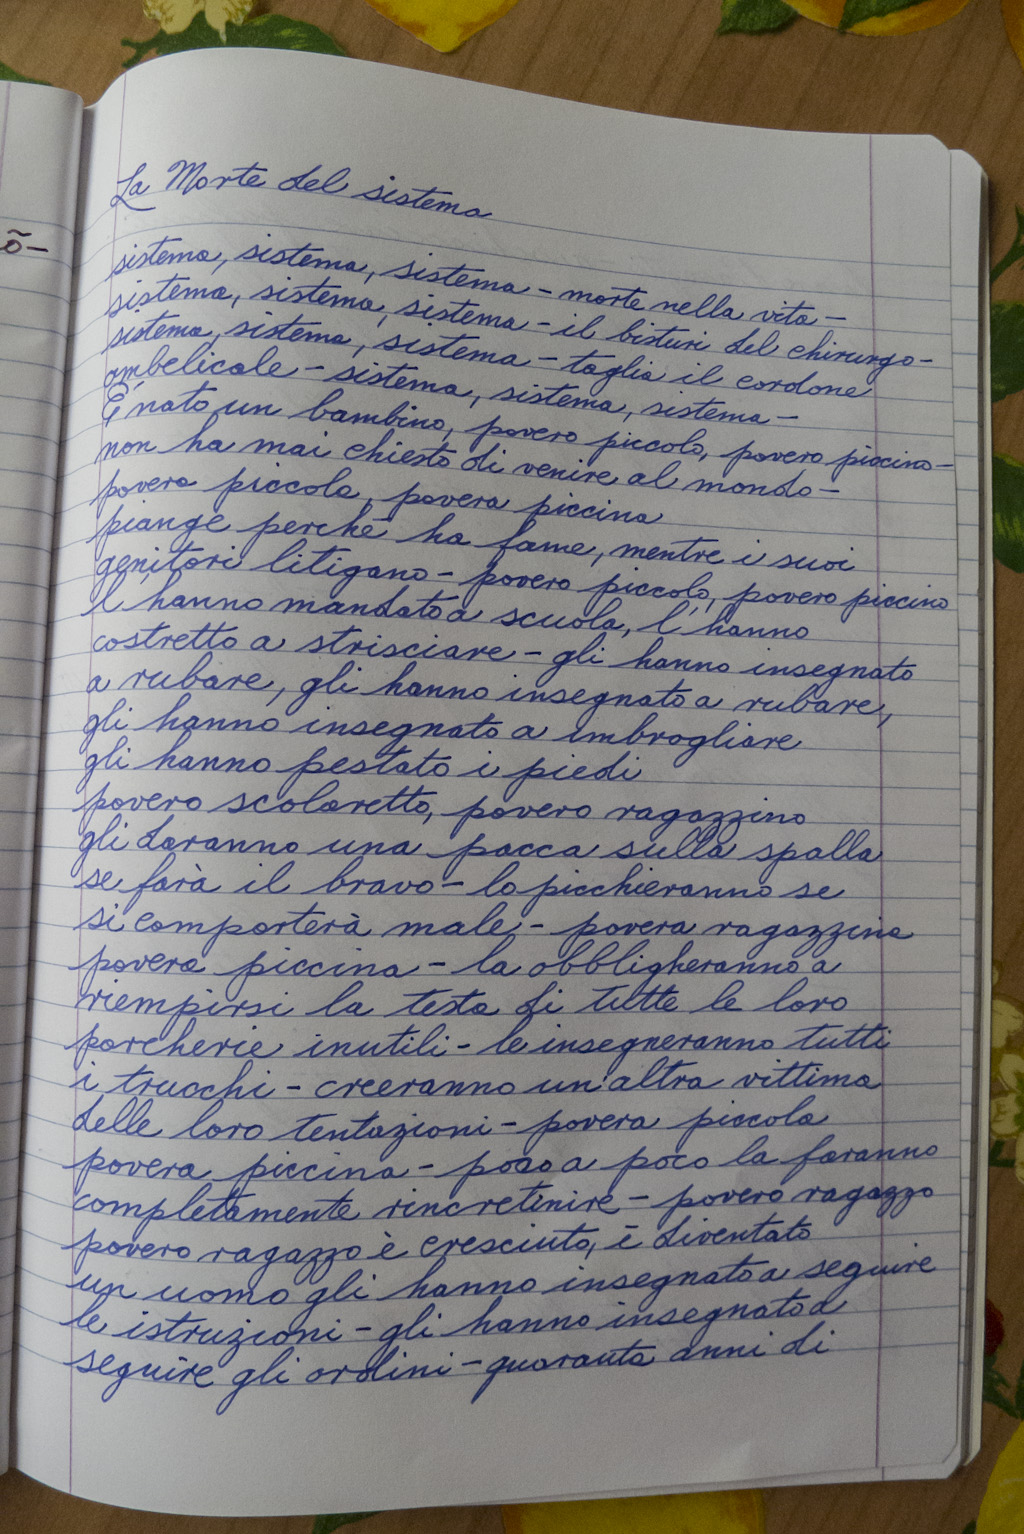 õ-
La Morte del sistema
sistema, sistema, sistema - morte nella vita -
sistema, sistema, sistema - il bisturi del chirurgo -
sistema, sistema, sistema - taglia il cordone
ombelicale - sistema, sistema, sistema -
È nato un bambino, povero piccolo, povero piccino -
non ha mai chiesto di venire al mondo -
povera piccola, povera piccina
piange perchè ha fame, mentre i suoi
genitori litigano - povero piccolo, povero piccino
l'hanno mandato a scuola, l'hanno
costretto a strisciare - gli hanno insegnato
a rubare, gli hanno insegnato a rubare,
gli hanno insegnato a imbrogliare
gli hanno pestato i piedi
povero scolaretto, povero ragazzino
gli daranno una pacca sulla spalla
se farà il bravo - lo picchieranno se
si comporterà male - povera ragazzina
povera piccina - la obbligheranno a
riempirsi la testa di tutte le loro
porcherie inutili - le insegneranno tutti
i trucchi - creeranno un'altra vittima
delle loro tentazioni - povera piccola
povera piccina - poco a poco la faranno
completamente rincretinire - povero ragazzo
povero ragazzo è cresciuto, è diventato
un uomo gli hanno insegnato a seguire
le istruzioni - gli hanno insegnato a
seguire gli ordini - quaranta anni di